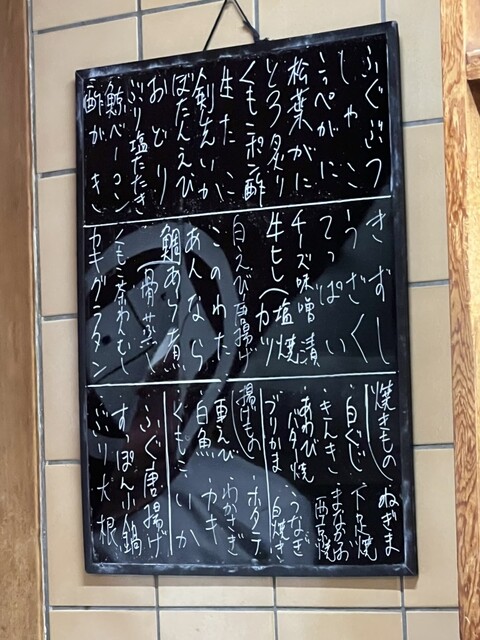 ふぐぶつ
しゃこ
こっぺがに
松葉がに
とろ炙り
くもこポン酢
生たこ
剣先いか
ぼたんえび
おどり
ぶり塩たたき
鯨ベーコン
酢がき
きずし
うざく
てっぱい
チーズ味噌漬
牛ヒレ(カツ 塩焼
白えび唐揚げ
このわた
あんなら
鯛あら煮
骨蒸し
くもこ茶わんむし
カキグラタン
焼きもの ねぎま
白ぐじ 下足焼
きんき まながお西京焼
あわびバター焼
ぶりかま うなぎ白焼き
揚げもの ホタテ
車えび カキ
白魚 わかさぎ
くもこ いか
ふぐ唐揚げ
すっぽん小鍋
ぶり大根